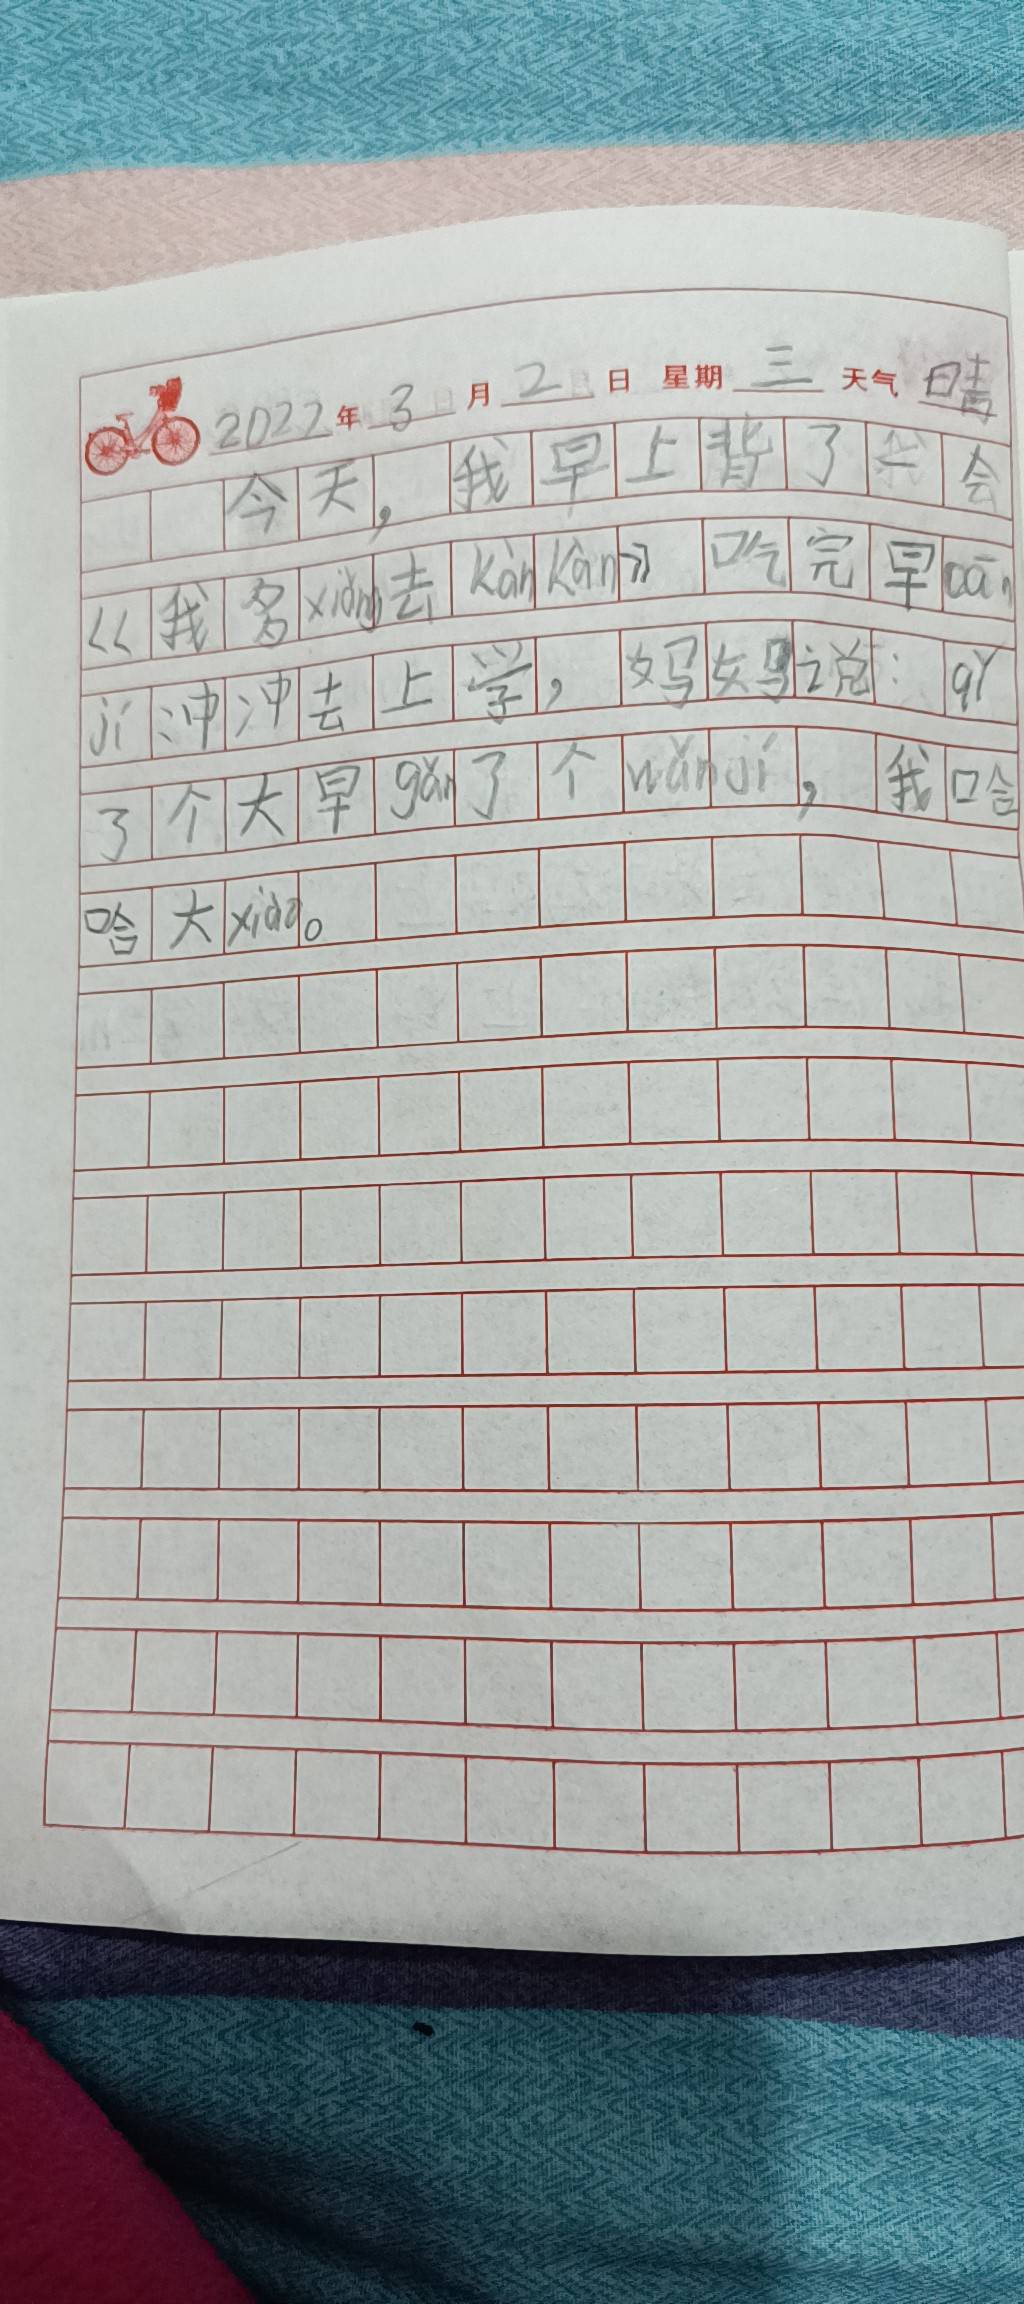 2022年3月2日 星期三 天气晴
今天，我早上背了会
《我多xiǎng去kànkàn》吃完早cān
jí冲冲去上学，妈妈说：qǐ
了个大早gǎn了个wǎnjí，我哈
哈大xiào。